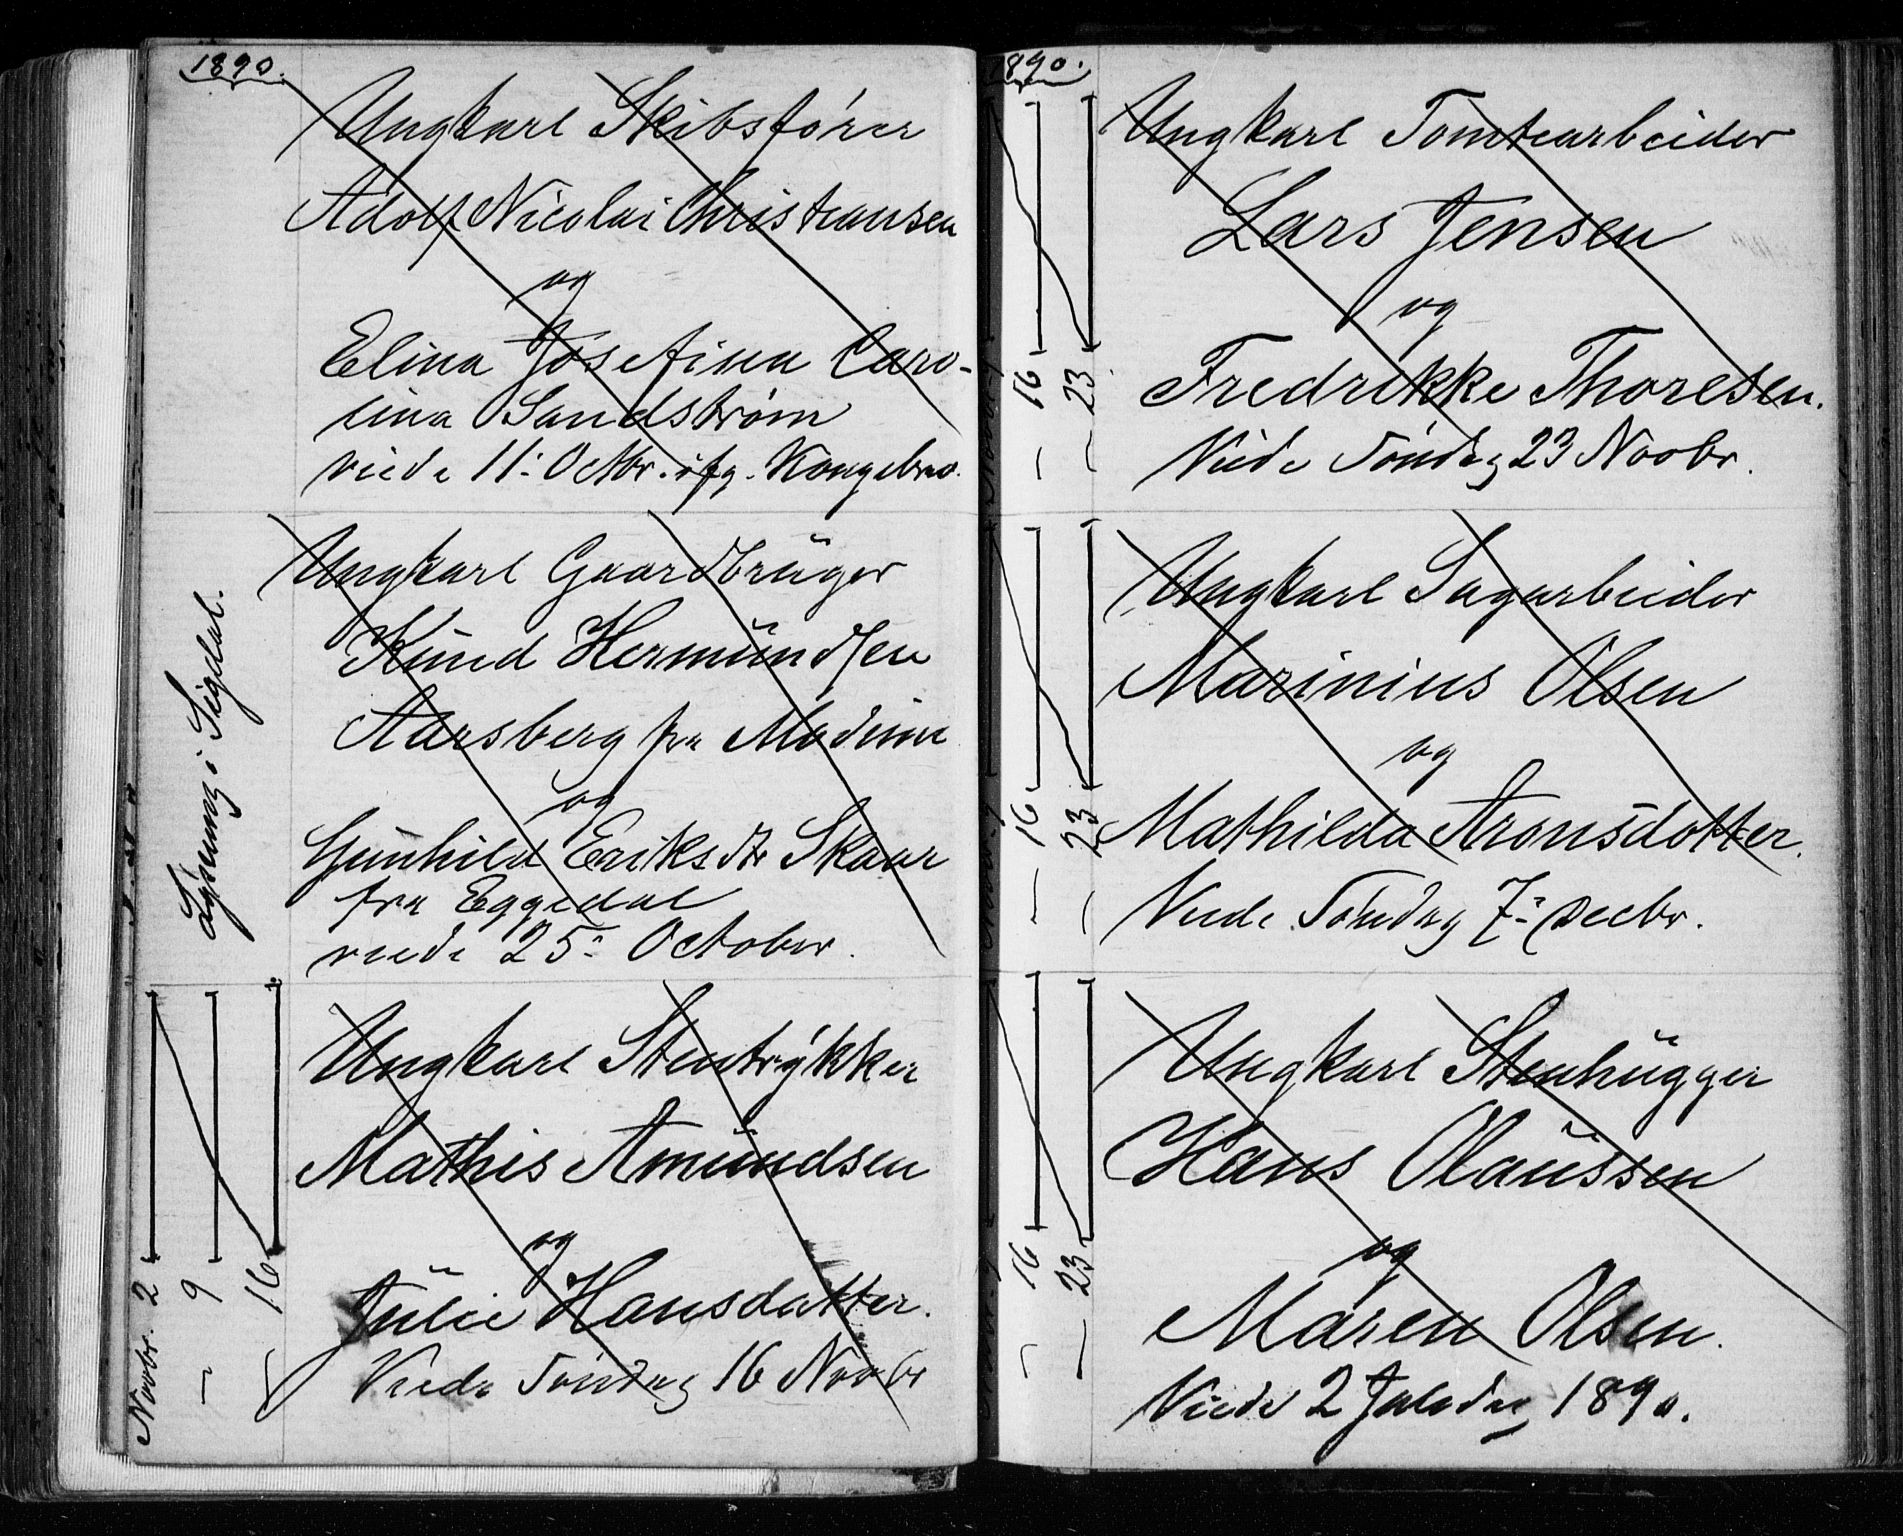 1890.
Ungkarl Skibsfører
Adolf Nicolai Christiansen
og
Elina Josefina Caro-
lina Sandstrøm
viede 11: Octbr. ifg. Kongebrev.
Lysning i Sigdal.
Ungkarl Gaardbrüger
Knüd Hermündsen
Aarsberg fra Modum
og
Günhild Eriksdtr Skaar
fra Eggedal
viede 25: October.
Novbr. 2
— 9
— 16
Ungkarl Stentrykker
Mathis Amündsen
og
Jülie Hansdatter.
Viede Søndag 16 Novbr
1890.
— 16
— 23
Ungkarl Tomtearbeider
Lars Jensen
og
Fredrikke Thoresen.
Viede Søndag 23 Novbr.
— 16
— 23
Ungkarl Sagarbeider
Marinius Olsen
og
Mathilda Aronsdotter.
Viede Søndag 7: Decbr.
— 16
— 23
Ungkarl Stenhügger
Hans Olaüssen
og
Maren Olsen.
Viede 2 Juledag 1890.